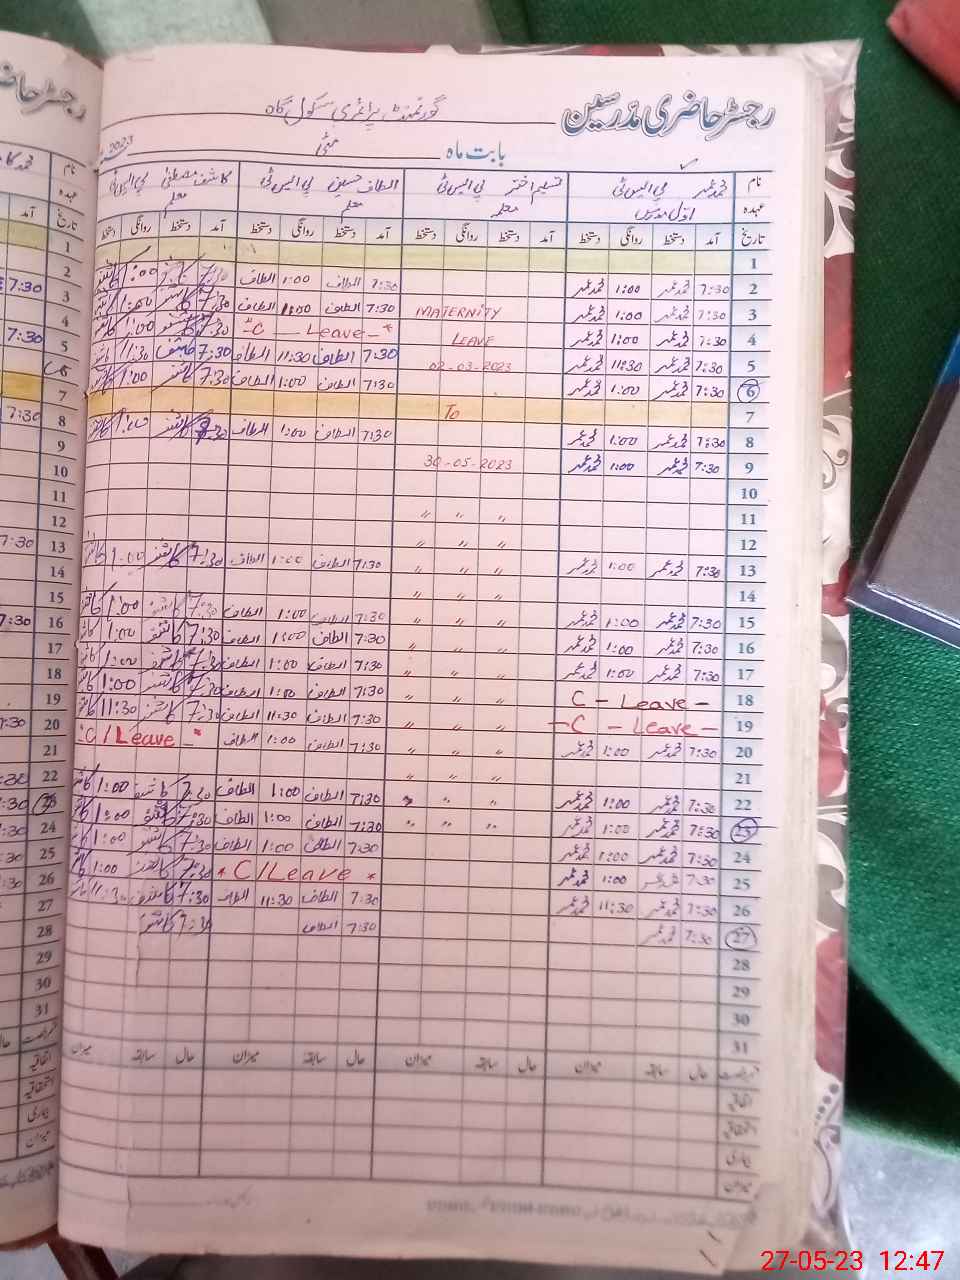 رجسٹر حاضری مدرسین
گورنمنٹ پرائمری سکول گاہ
بابت ماہ مئی 2023
نام محمد عمر پی ایس ٹی تسلیم اختر پی ایس ٹی الطاف حسین پی ایس ٹی کاشف مصطفیٰ پی ایس ٹی
عہدہ اول مدرس معلمہ معلم معلم
تاریخ آمد دستخط روانگی دستخط آمد دستخط روانگی دستخط آمد دستخط روانگی دستخط آمد دستخط روانگی دستخط
1
2 7:30 محمد عمر 1:00 محمد عمر 7:30 الطاف 1:00 الطاف 7:30 کاشف 1:00 کاشف
3 7:30 محمد عمر 1:00 محمد عمر MATERNITY 7:30 الطاف 1:00 الطاف 7:30 کاشف 1:00 کاشف
4 7:30 محمد عمر 1:00 محمد عمر LEAVE -C - Leave -* 7:30 کاشف 1:00 کاشف
5 7:30 محمد عمر 11:30 محمد عمر 02-03-2023 7:30 الطاف 11:30 الطاف 7:30 کاشف 11:30 کاشف
6 7:30 محمد عمر 1:00 محمد عمر 7:30 الطاف 1:00 الطاف 7:30 کاشف 1:00 کاشف
7 To
8 7:30 محمد عمر 1:00 محمد عمر 7:30 الطاف 1:00 الطاف 7:30 کاشف 1:00 کاشف
9 7:30 محمد عمر 1:00 محمد عمر 30-05-2023
10
11 " " "
12 " " "
13 7:30 محمد عمر 1:00 محمد عمر " " " 7:30 الطاف 1:00 الطاف 7:30 کاشف 1:00 کاشف
14 " " "
15 7:30 محمد عمر 1:00 محمد عمر " " " 7:30 الطاف 1:00 الطاف 7:30 کاشف 1:00 کاشف
16 7:30 محمد عمر 1:00 محمد عمر " " " 7:30 الطاف 1:00 الطاف 7:30 کاشف 1:00 کاشف
17 7:30 محمد عمر 1:00 محمد عمر " " " 7:30 الطاف 1:00 الطاف 7:30 کاشف 1:00 کاشف
18 C - Leave - " " " 7:30 الطاف 1:00 الطاف 7:30 کاشف 1:00 کاشف
19 -C - Leave - " " " 7:30 الطاف 11:30 الطاف 7:30 کاشف 11:30 کاشف
20 7:30 محمد عمر 1:00 محمد عمر " " " 7:30 الطاف 1:00 الطاف -C/Leave -*
21 " " "
22 7:30 محمد عمر 1:00 محمد عمر " " " 7:30 الطاف 1:00 الطاف 7:30 کاشف 1:00 کاشف
23 7:30 محمد عمر 1:00 محمد عمر " " " 7:30 الطاف 1:00 الطاف 7:30 کاشف 1:00 کاشف
24 7:30 محمد عمر 1:00 محمد عمر 7:30 الطاف 1:00 الطاف 7:30 کاشف 1:00
25 7:30 محمد عمر 1:00 محمد عمر * C/Leave * 7:30 کاشف 1:00 کاشف
26 7:30 محمد عمر 11:30 محمد عمر 7:30 الطاف 11:30 الطاف 7:30 کاشف 11:30
27 7:30 محمد عمر 7:30 الطاف 7:30 کاشف
28
29
30
31
رخصت حال سابقہ میزان حال سابقہ میزان حال سابقہ میزان حال سابقہ میزان
اتفاقیہ
استحقاقیہ
بیماری
میزان
27-05-23 12:47